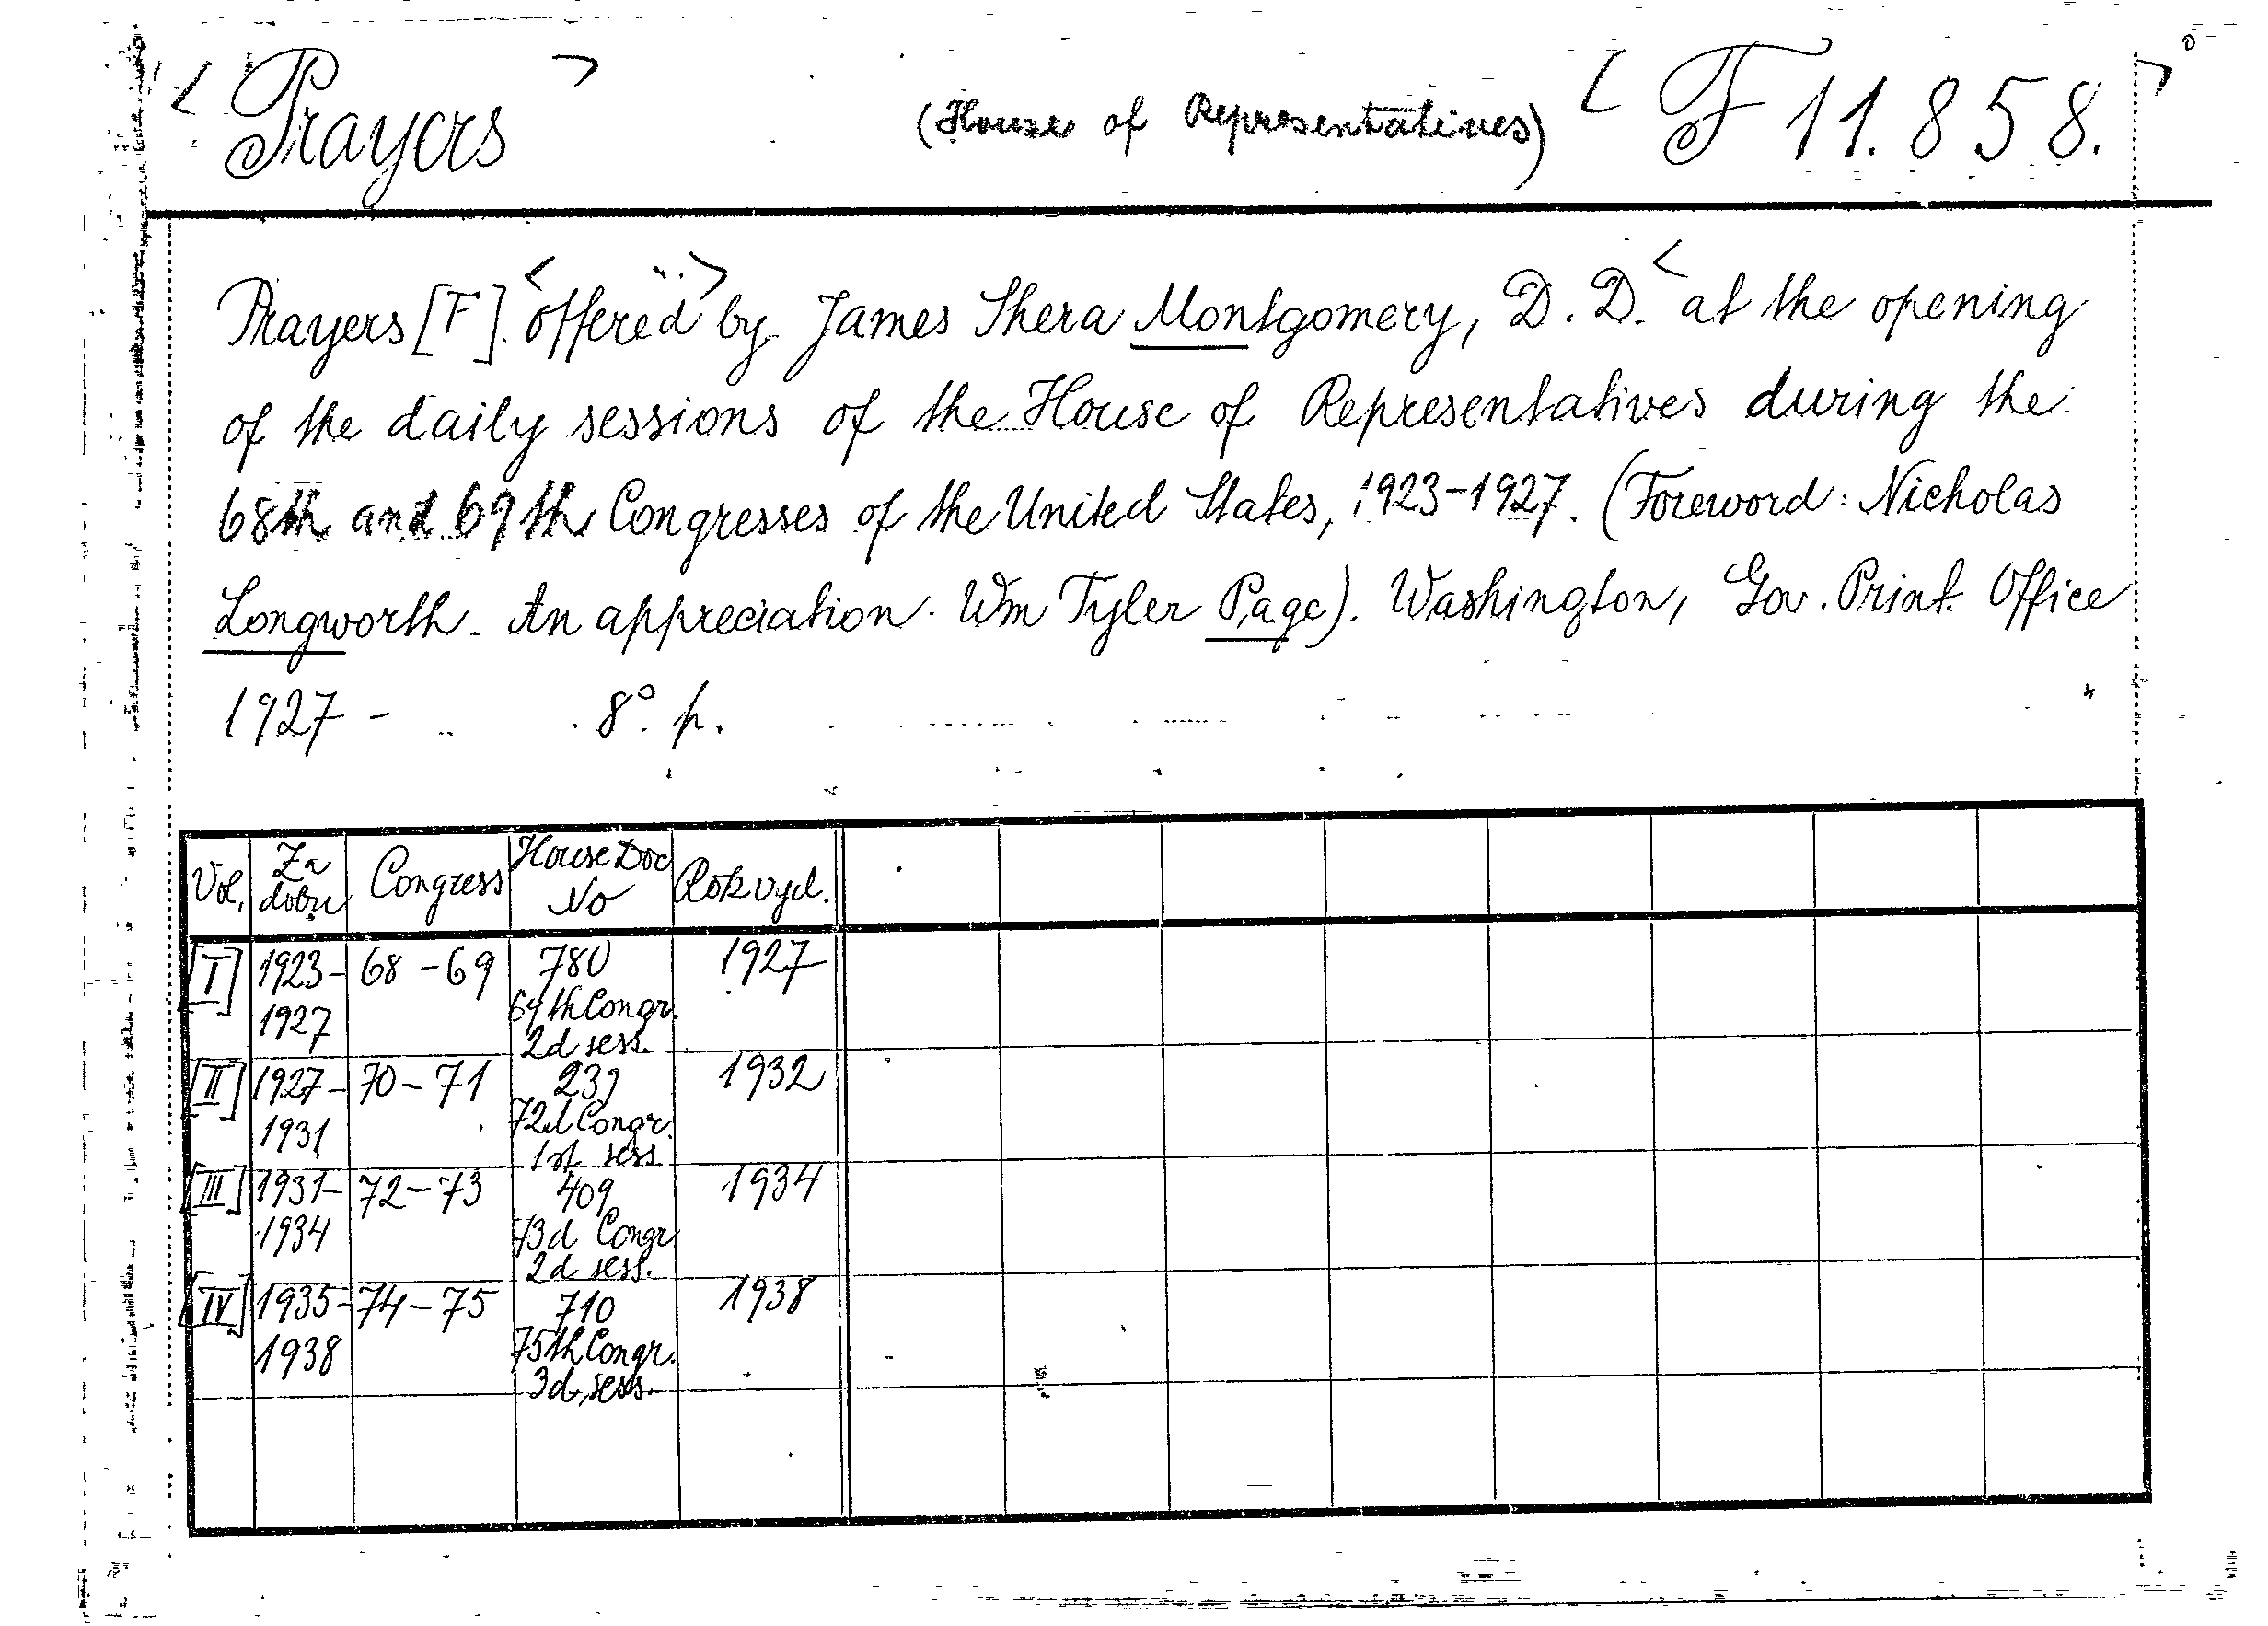 < Prayers > (House of Representatives) < F 11.858. >
Prayers [F]. <offered> by James Shera Montgomery, D. D. < at the opening
of the daily sessions of the House of Representatives during the
68th and 69th Congresses of the United States, 1923-1927. (Foreword: Nicholas
Longworth. An appreciation. Wm Tyler Page). Washington, Gov. Print. Office
1927 - 8° p.
Vol. Za dobu Congress House Doc No Rok vyd.
[I] 1923- 68 - 69 780 1927
1927 69th Congr.
2d sess.
[II] 1927- 70 - 71 239 1932
1931 72d Congr.
1st sess
[III] 1931- 72 - 73 409 1934
1934 73d Congr
2d sess.
[IV] 1935- 74 - 75 710 1938
1938 75th Congr.
3d, sess.